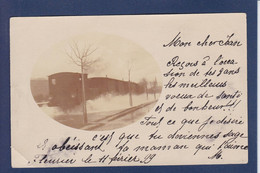 Mon cher Jean
Reçois à l'occa
sion de tes 3 ans
les meilleurs
vœux de santé
et de bonheur!!!
Tout ce que je désire
c'est que tu deviennes sage
et obéissant. Ta maman qui t'aime
Fleurier le 11 février 19